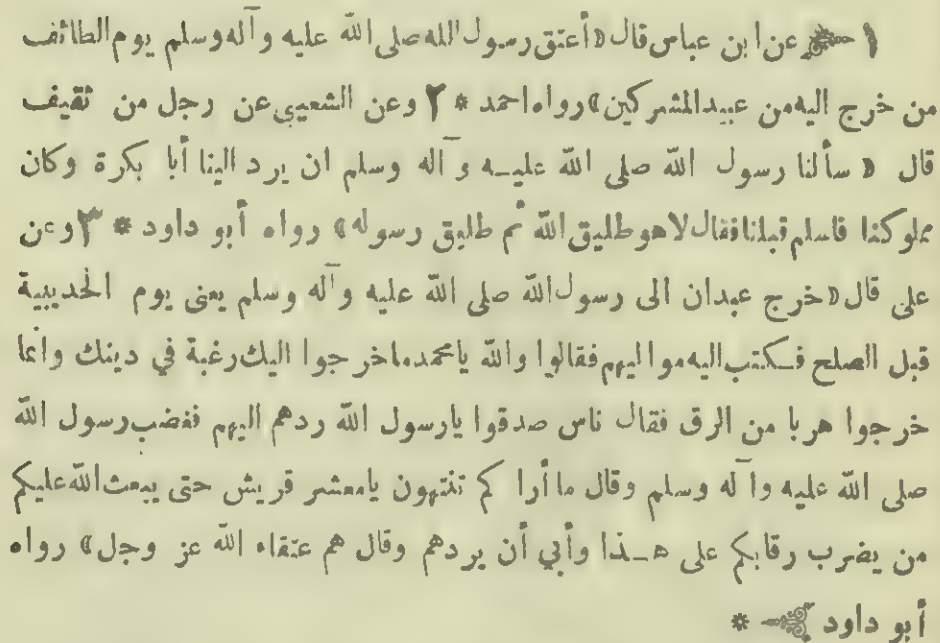 ١ عن ابن عباس قال «أعتق رسول الله صلى الله عليه وآله وسلم يوم الطائف
من خرج اليه من عبيد المشركين» رواه احمد * ٢ وعن الشعبي عن رجل من ثقيف
قال «سألنا رسول الله صلى الله عليه وآله وسلم ان يرد الينا أبا بكرة وكان
مملوكنا فاسلم قبلنا فقال لا هو طليق الله ثم طليق رسوله» رواه أبو داود * ٣ وعن
على قال «خرج عبدان الى رسول الله صلى الله عليه وآله وسلم يعنى يوم الحديبية
قبل الصلح فكتب اليه مواليهم فقالوا والله يا محمد ما خرجوا اليك رغبة في دينك وانما
خرجوا هربا من الرق فقال ناس صدقوا يا رسول الله ردهم اليهم فغضب رسول الله
صلى الله عليه وآله وسلم وقال ما أراكم تنتهون يا معشر قريش حتى يبعث الله عليكم
من يضرب رقابكم على هذا وأبي أن يردهم وقال هم عتقاء الله عز وجل» رواه
أبو داود *